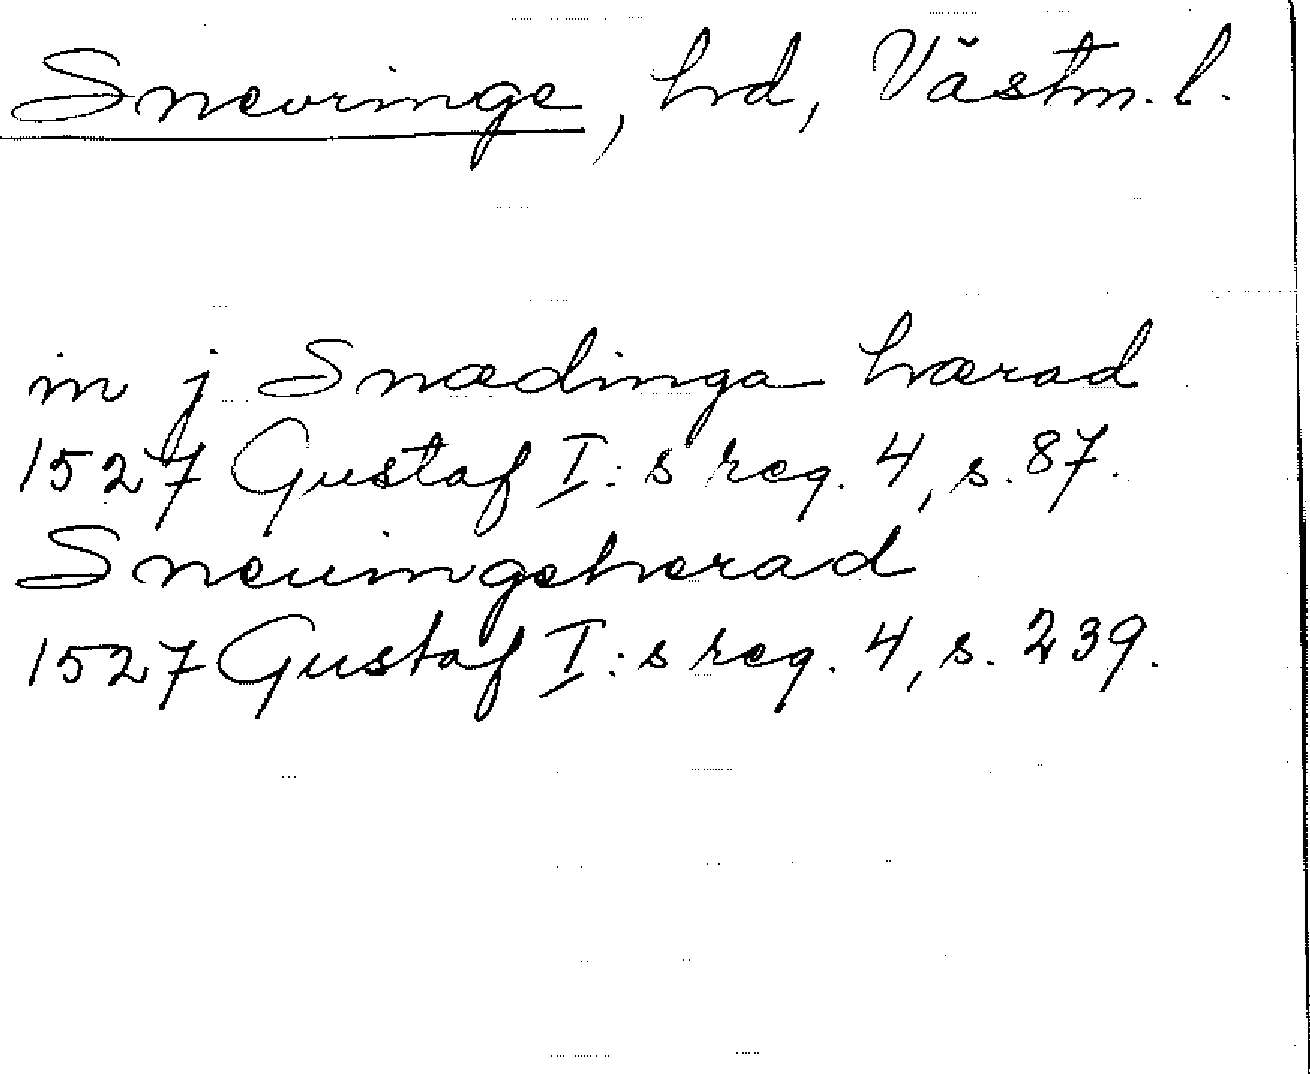 Snevringe, hd, Västm. l.
in j Snædinga hærad
1527 Gustaf I:s reg. 4, s. 87.
Sneuingeherad
1527 Gustaf I:s reg. 4, s. 239.